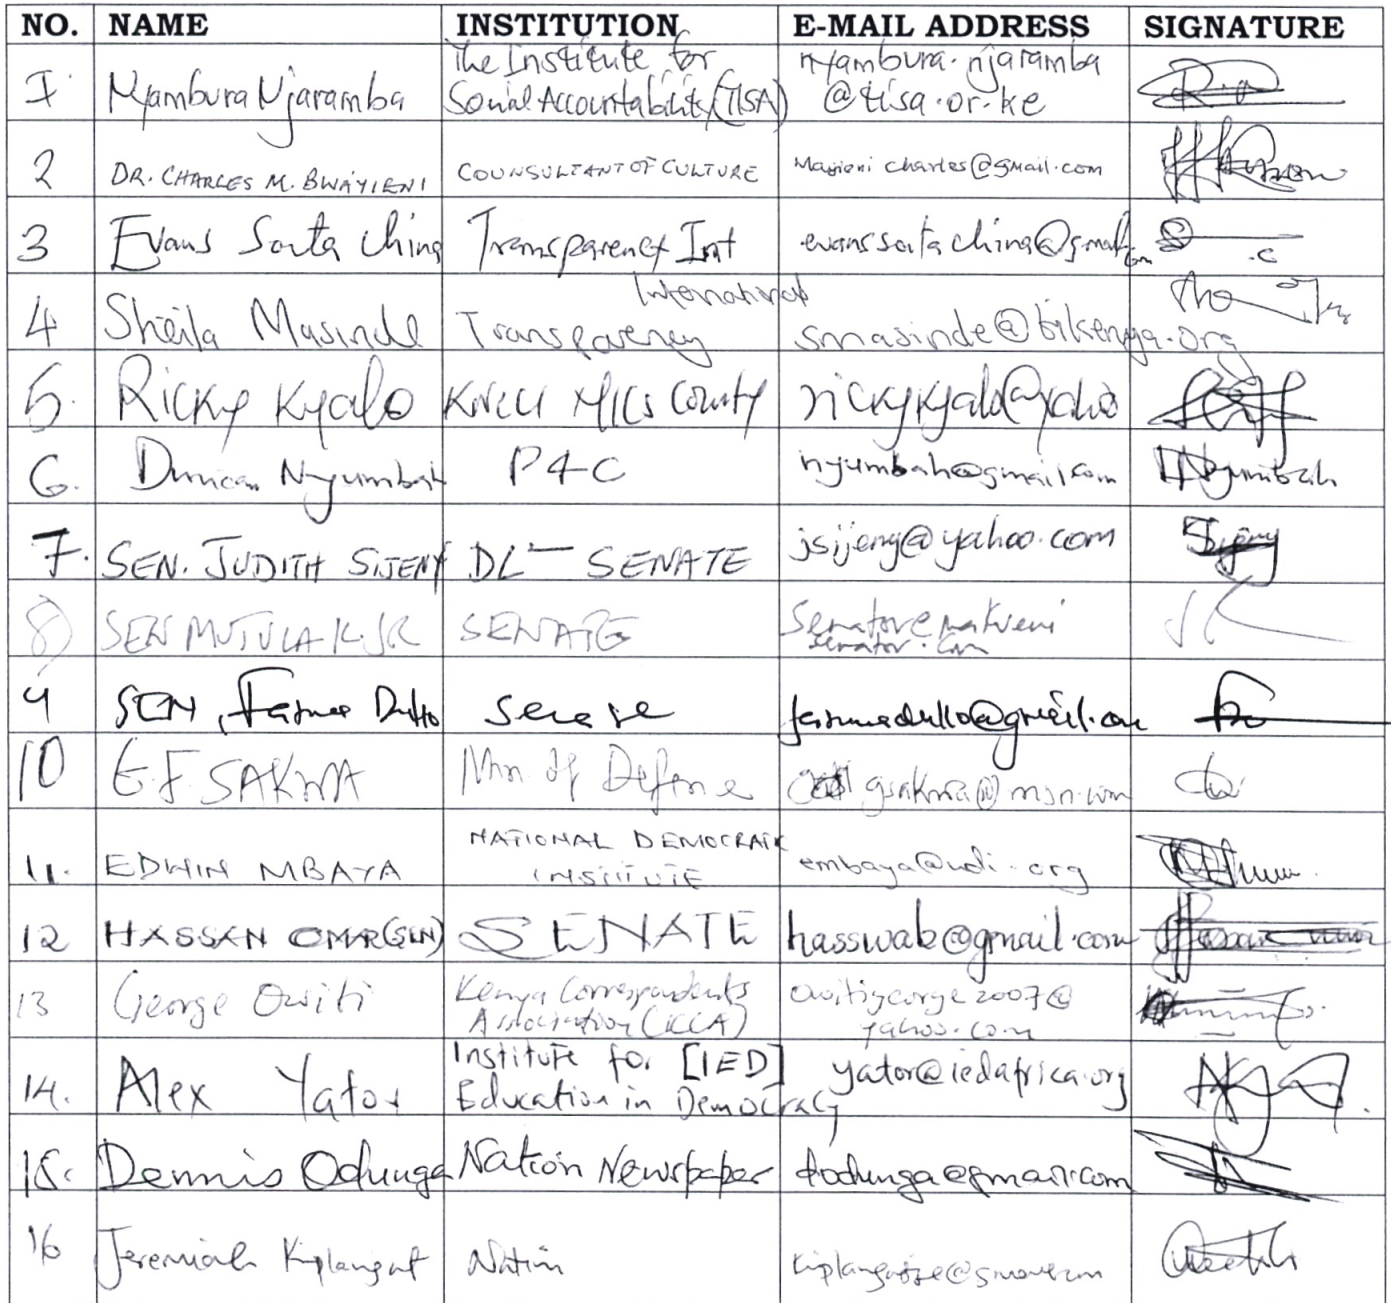 NO. NAME INSTITUTION E-MAIL ADDRESS SIGNATURE
1 Nyambura Njaramba The Institute for Social Accountability (TISA) nyambura.njaramba @tisa.or.ke
2 DR. CHARLES M. BWAYIENI COUNSULTANT OF CULTURE charles@gmail.com
3 Evans Sarta China Transparency Int
4 Sheila Masinde International Transparency smasinde@tikenya.org
5. Ricky Kyalo County rickykyalo@yaho
6. Duncan Nyumbah P4C nyumbah@gmail.com
7. SEN. JUDITH SIJENY DL – SENATE jsijeny@yahoo.com
8) SEN MUTULA K. JR SENATE Senator@makueni senator.com
9 SEN, Dullo
10 G.F. SAKWA Min of Defence gsakwa@msn.com
11. EDWIN MBAYA NATIONAL DEMOCRATIC INSTITUTE embaya@ndi.org
12 HASSAN OMAR (SEN) SENATE hasswab@gmail.com
13 George Owiti Kenya Correspondents Association (KCA) owitigeorge2007@ yahoo.com
14. Alex Yator Institute for [IED] Education in Democracy yator@iedafrica.org
15. Dennis Odunga Nation Newspaper dodunga@gmail.com
16 Jeremiah Kiplangat Nation